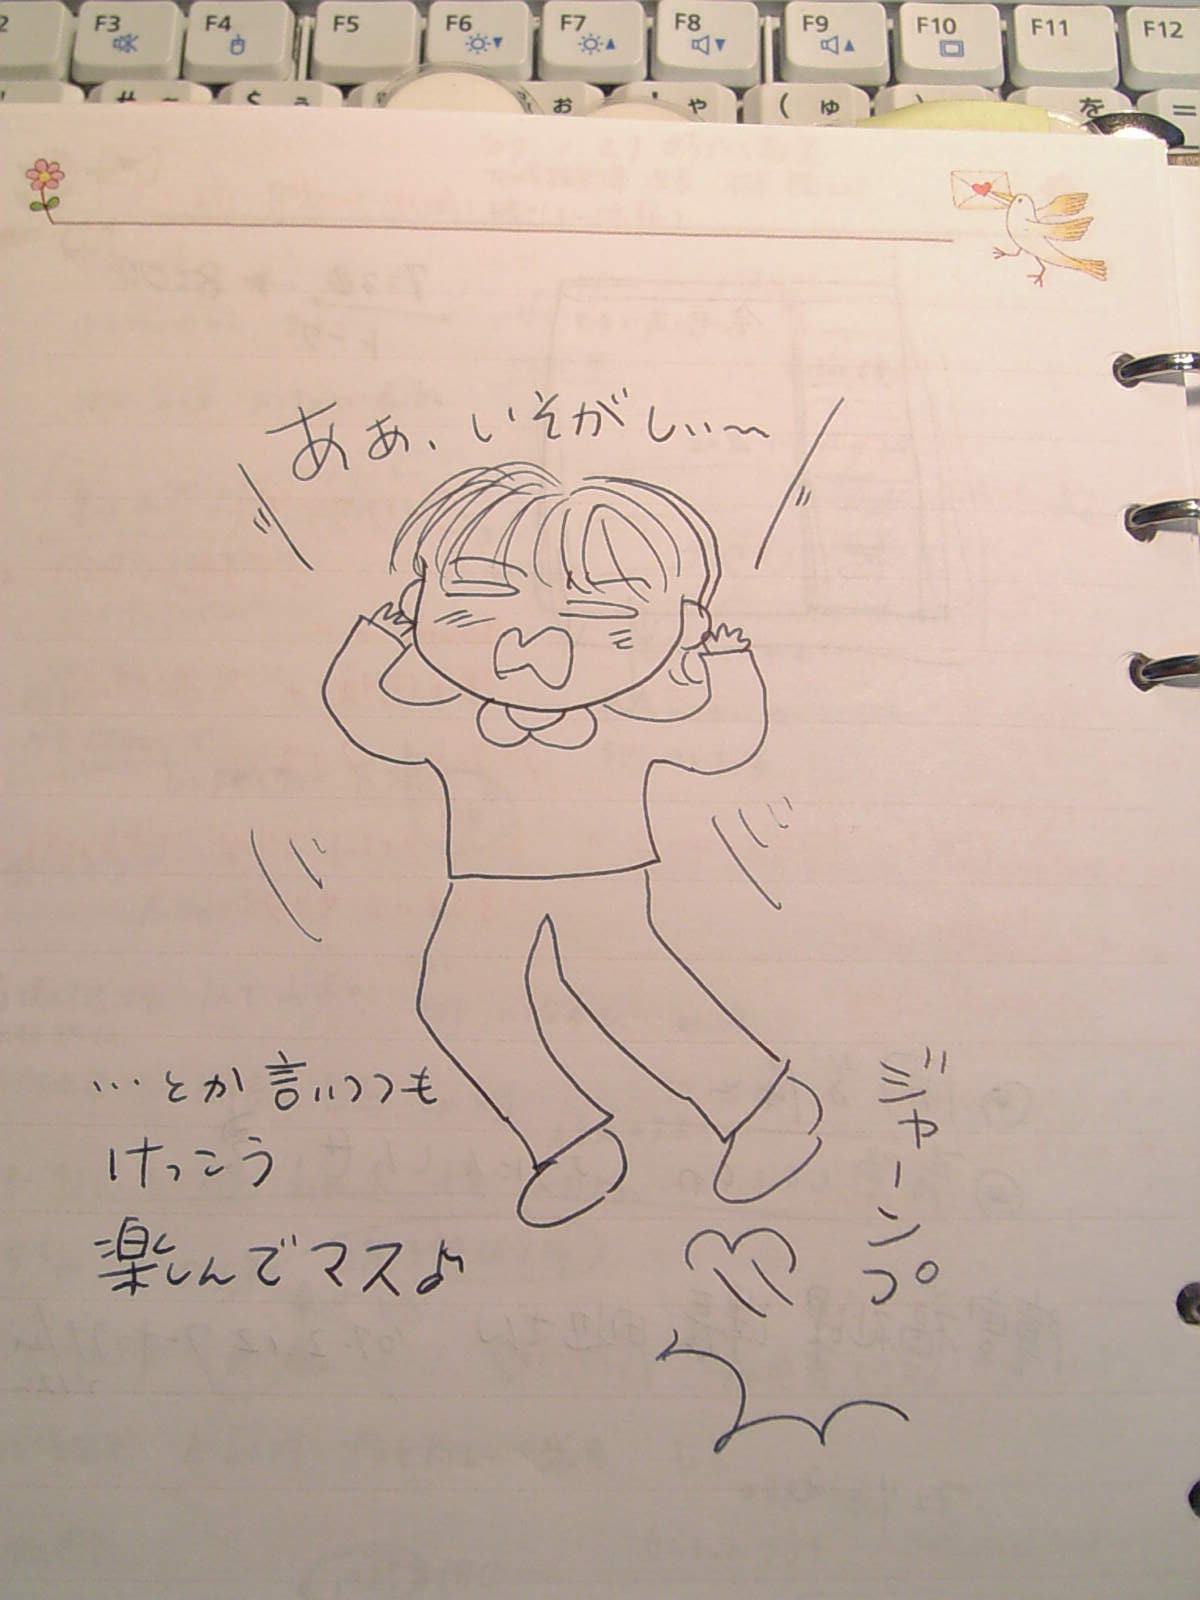 F3
F4
F5
F6
F7
F8
F9
F10
F11
F12
ぅ
ぉ
ゃ
( ゅ
を
=
ああ、いそがしい〜
…とか言いつつも
けっこう
楽しんでマス♪
ジャーンプ